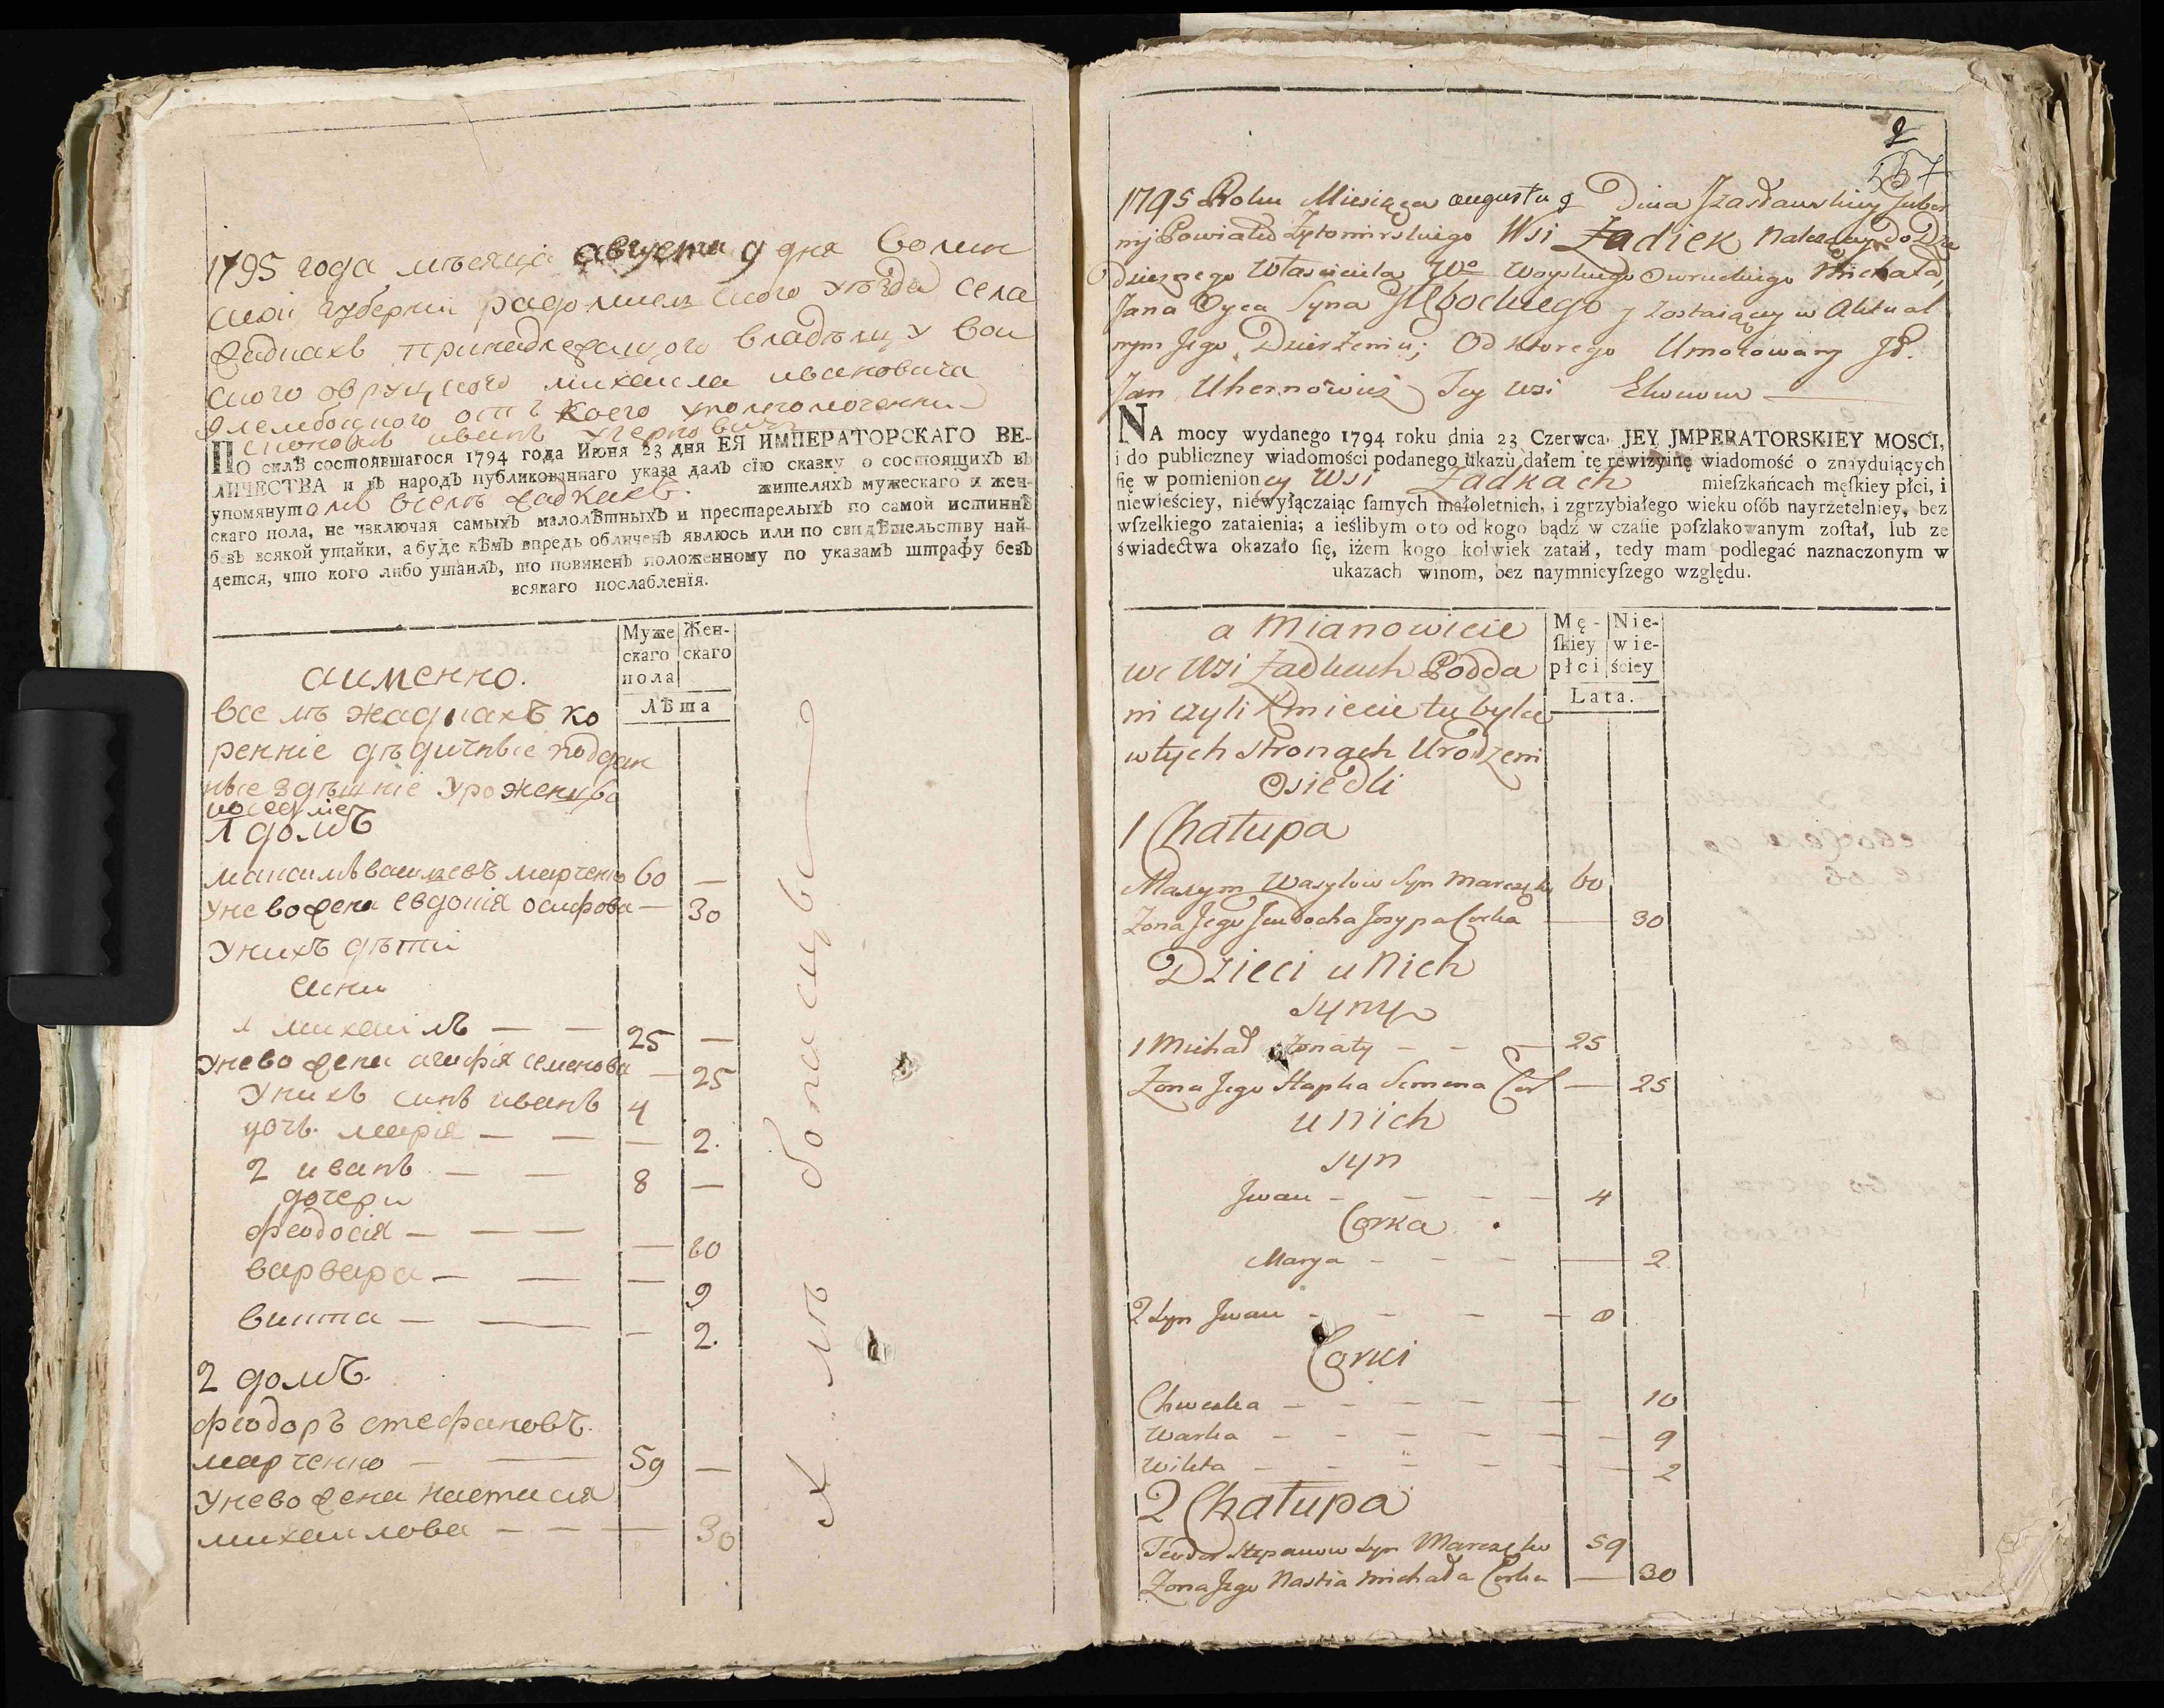 1795 года мѣсяца августа 9 дня Волин
ской губернии радомисльского уѣзда села
Жадкахъ принадлежащого владѣлцу вои
ского овруцкого михаила ивановича
от коего уполномоченни
иванъ
ПО силѣ состоявшагося 1794 года Июня 23 дня ЕЯ ИМПЕРАТОРСКАГО ВЕ-
ЛИЧЕСТВА и въ народъ публикованнаго указа далъ сїю сказку о состоящихъ въ
упомянутомъ селѣ жадкахъ. жителяхъ мужескаго и жен-
скаго пола, не изключая самыхъ малолѣтныхъ и престарелыхъ по самой истиннѣ
безъ всякой утайки, а буде кѣмъ впредь обличенъ явлюсь или по свидѣтельству най-
дется, что кого либо утаилъ, то повиненъ положенному по указамъ штрафу безъ
всякаго послабленїя.
Муже Жен-
скаго скаго
пола
Лѣта
аименно.
все лѣ жадкахъ ко
ренніе дѣдичные поддан
ные здѣшніе уроженцы
1 домъ
максимъ василевъ марченко 60 —
унево жена евдокія осифова — 30
унихъ дѣти
сини
1 михаилъ — — 25 —
унево жена агафія семенова — 25
унихъ синъ иванъ 4
дочь. марія — — — 2.
2 иванъ — — 8 —
дочери
феодосія — — — — 10
варвара — — — 9
викта — — — 2.
2 домъ.
феодоръ стефановъ.
марченко — — 59 —
унево жена настасія
михаилова — — — 30
2
567
1795 Roku Miesiąca augusta 9 Dnia Izasławskiey Guber
nij Powiatu Zytomirskiego Wsi Żadiek Należącey do Dzie
dziczego Właściciela JWo Woyskiego Owruckiego Michała,
Jana Oyca Syna y zostaiącey w Aktual
nym Jego Dzierżeniu; Od ktorego Umocowany JP.
Jan Uhernowicz Tey wsi Ekonom —
NA mocy wydanego 1794 roku dnia 23 Czerwca JEY JMPERATORSKIEY MOSCI,
i do publiczney wiadomości podanego ukazu dałem tę rewizyinę wiadomość o znayduiących
się w pomienioney Wsi Żadkach mieſzkańcach męſkiey płci, i
niewieściey, niewyłączaiąc ſamych małoletnich, i zgrzybiałego wieku oſób nayrzetelniey, bez
wſzelkiego zataienia; a ieślibym oto od kogo bądź w czaſie poſzlakowanym zoſtał, lub ze
świadectwa okazało ſię, iżem kogo kolwiek zataił, tedy mam podlegać naznaczonym w
ukazach winom, bez naymnieyſzego względu.
Mę- Nie-
ſkiey wie-
płci ściey
Lata.
a Mianowicie
we Wsi Żadkach Podda
ni czyli Kmiecie tu bylce
w tych stronach Urodzeni
Osiedli
1 Chałupa
Maxym Wasylow Syn Marczęko 60
Żona Jego Jewdocha Josypa Corka — 30
Dzieci u Nich
Syny
1 Michał Żonaty — — — 25
Żona Jego Hapka Semena Cor — 25
u nich
syn
Jwan — — — — 4
Corka .
Marya — — — — 2
2 Syn Jwan — — — — 8
Corki
Chweska — — — — — 10
Warka — — — — — — 9
Wikta — — — — — — 2
2 Chałupa
Teodor Stepanow Syn Marczęko 59
Żona Jego Nastia Michała Corka — 30